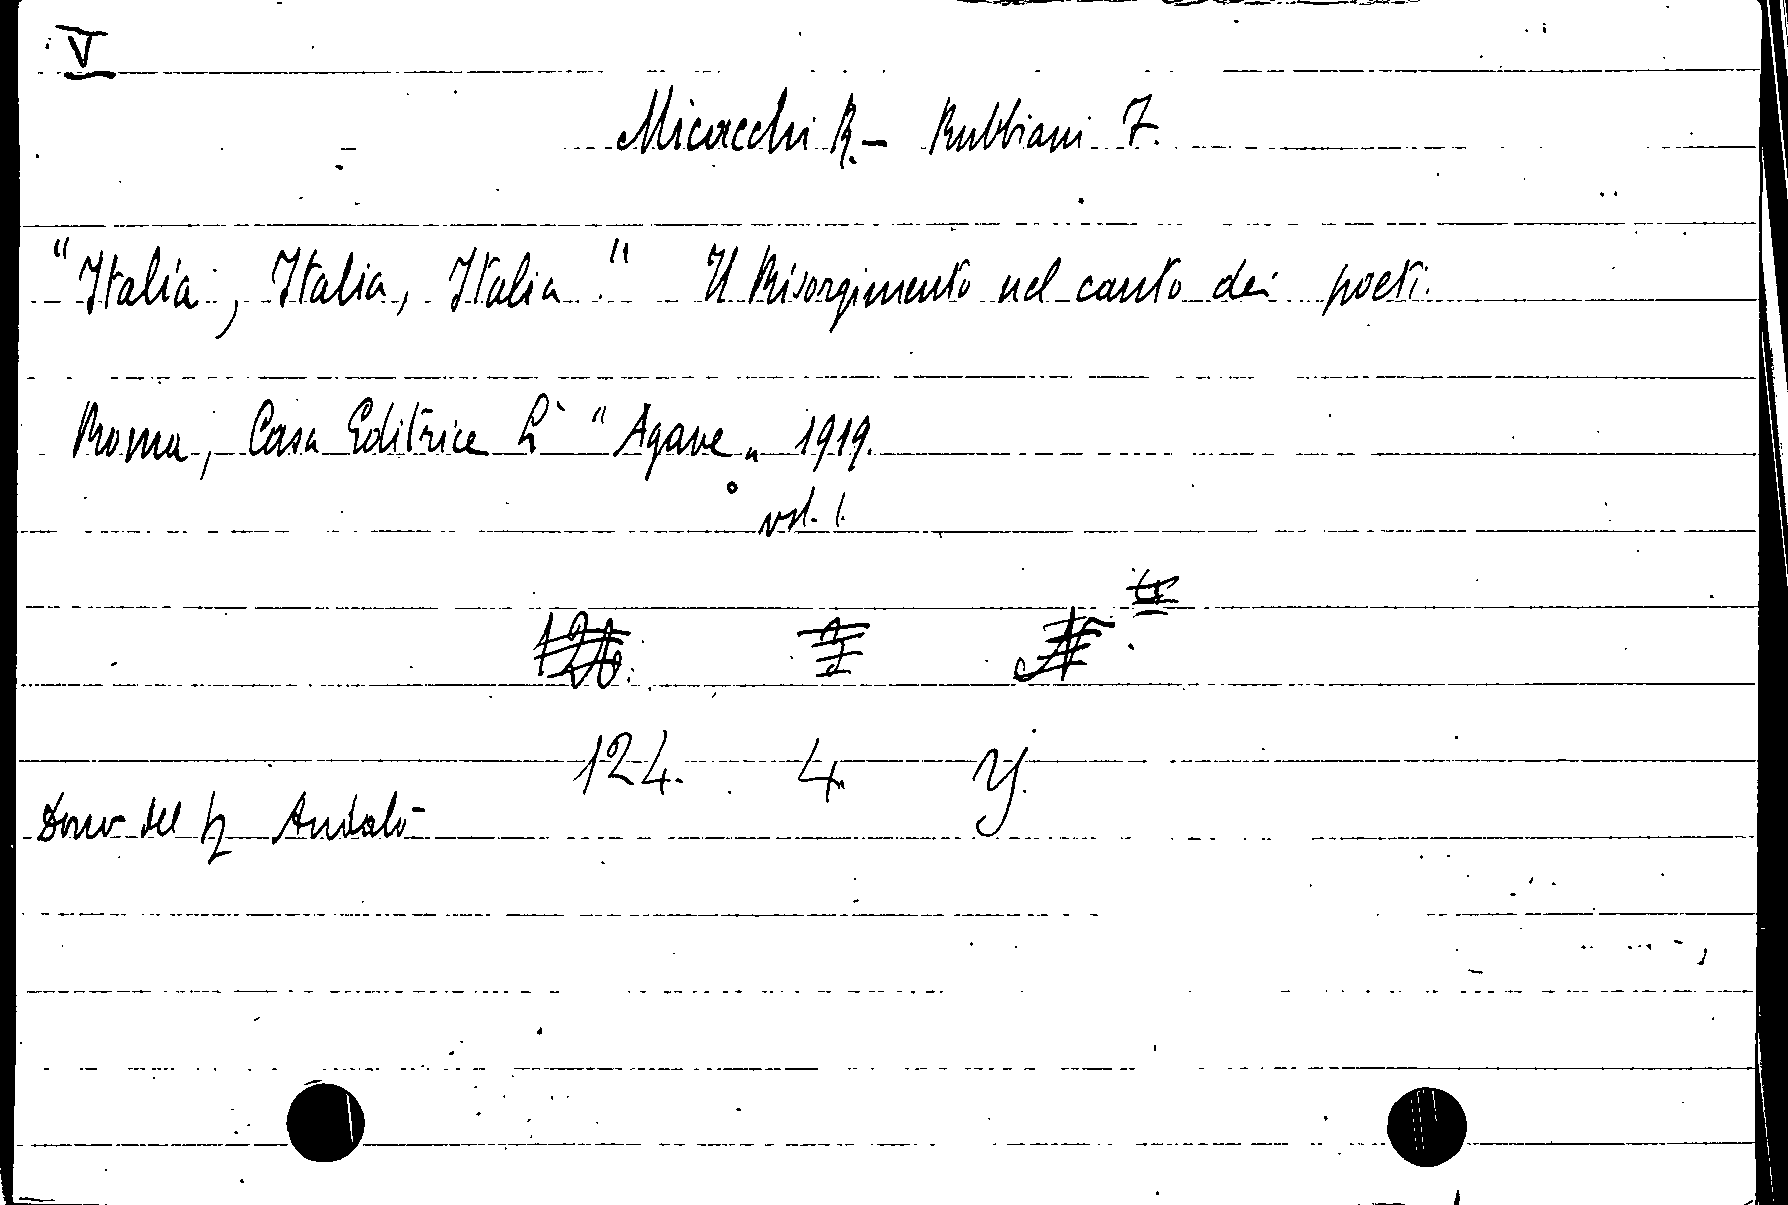 V
Micacchi R. - Rubbiani F.
"Italia, Italia, Italia." Il Risorgimento nel canto dei poeti.
Roma, Casa Editrice L' "Agave" 1919.
vol. 1.
124. 4. Y.
Dono del Andalò